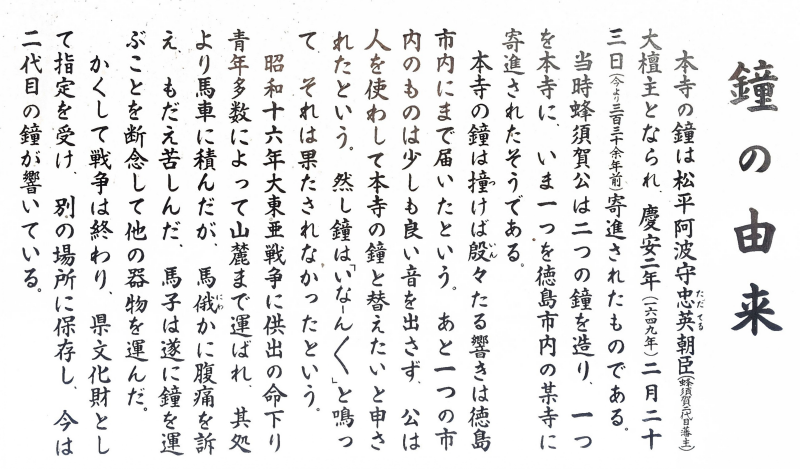 鐘の由来
本寺の鐘は松平阿波守忠英朝臣(蜂須賀二代目藩主)
大檀主となられ、慶安二年(一六四九年)二月二十
三日(今より三百三十余年前)寄進されたものである。
当時蜂須賀公は二つの鐘を造り、一つ
を本寺に、いま一つを徳島市内の某寺に
寄進されたそうである。
本寺の鐘は撞けば殷々たる響きは徳島
市内にまで届いたという。あと一つの市
内のものは少しも良い音を出さず、公は
人を使わして本寺の鐘と替えたいと申さ
れたという。然し鐘は「いなーん〱」と鳴っ
て、それは果たされなかったという。
昭和十六年大東亜戦争に供出の命下り
青年多数によって山麓まで運ばれ、其処
より馬車に積んだが、馬俄かに腹痛を訴
え、もだえ苦しんだ、馬子は遂に鐘を運
ぶことを断念して他の器物を運んだ。
かくして戦争は終わり、県文化財とし
て指定を受け、別の場所に保存し、今は
二代目の鐘が響いている。